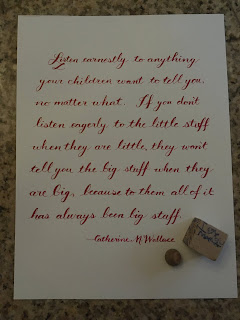 Listen earnestly to anything
your children want to tell you,
no matter what. If you don't
listen eagerly to the little stuff
when they are little, they won't
tell you the big stuff when they
are big, because to them all of it
has always been big stuff.
—Catherine M. Wallace